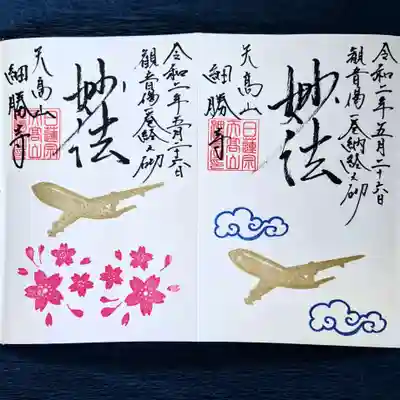 令和二年五月二十六日
観音偈 納経之砌
妙法
天高山
細勝寺
日蓮宗
天高山
令和二年五月二十六日
観音偈 之砌
妙法
天高山
細勝寺
日蓮宗
天高山